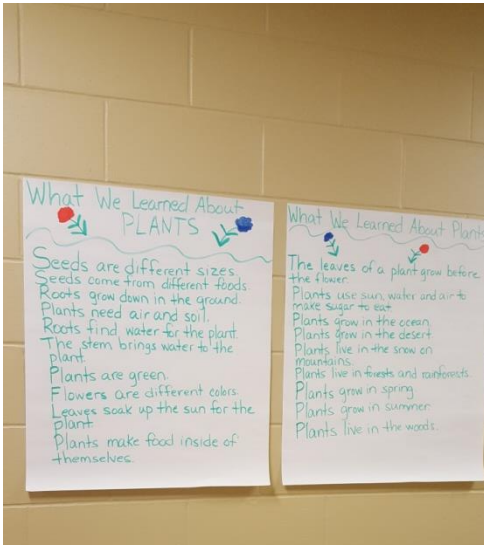 What We Learned About
PLANTS
Seeds are different sizes.
Seeds come from different foods.
Roots grow down in the ground.
Plants need air and soil.
Roots find water for the plant.
The stem brings water to the
plant.
Plants are green.
Flowers are different colors.
Leaves soak up the sun for the
plant.
Plants make food inside of
themselves.
What We Learned About Plants
The leaves of a plant grow before
the flower.
Plants use sun, water and air to
make sugar to eat.
Plants grow in the ocean.
Plants grow in the desert.
Plants live in the snow on
mountains.
Plants live in forests and rainforests.
Plants grow in spring.
Plants grow in summer.
Plants live in the woods.